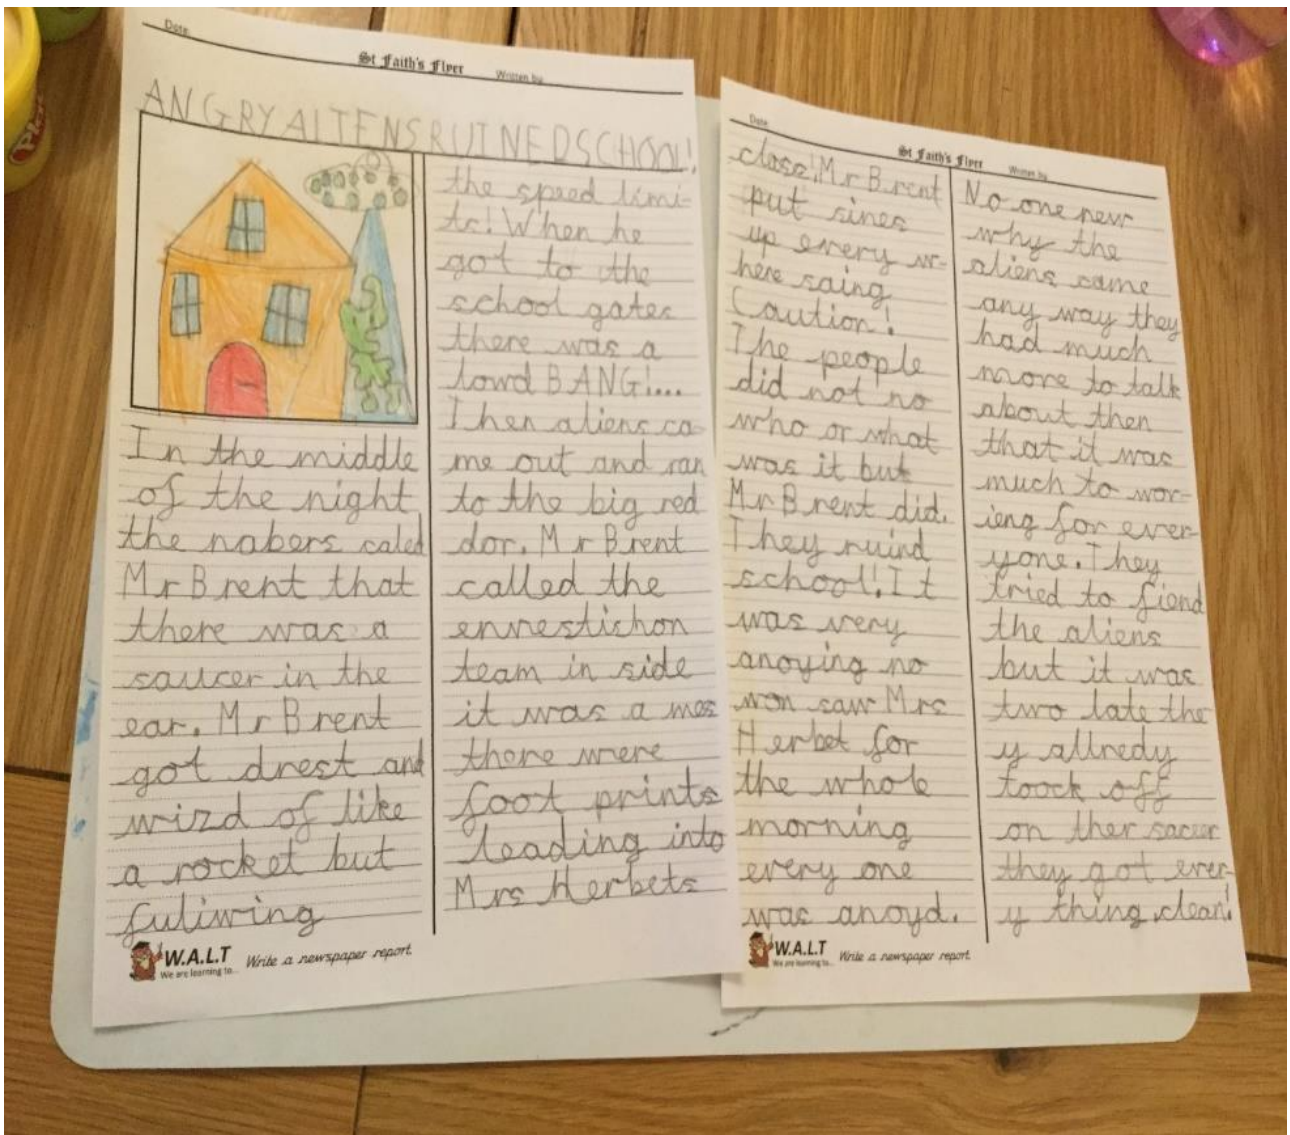 Date
St Faith's Flyer
Written by
ANGRY ALIENS RUINED SCHOOL!
In the middle
of the night
the nabers caled
Mr Brent that
there was a
saucer in the
ear. Mr Brent
got drest and
wizd of like
a rocket but
fuliwing
the speed limi-
ts! When he
got to the
school gates
there was a
lowd BANG!....
Then aliens ca-
me out and ran
to the big red
dor. Mr Brent
called the
envestishon
team in side
it was a mes
there were
foot prints
leading into
Mrs Herbets
W.A.L.T
We are learning to...
Write a newspaper report.
Date
St Faith's Flyer
Written by
close! Mr Brent
put sines
up every w-
here saing
Caution!
The people
did not no
who or what
was it but
Mr Brent did.
They ruind
school! It
was very
anoying no
won saw Mrs
Herbet for
the whole
morning
every one
was anoyd.
No one new
why the
aliens came
any way they
had much
more to talk
about then
that it was
much to wor-
ieng for ever-
yone. They
tried to fiend
the aliens
but it was
two late the
y allredy
toock off
on ther sacer
they got ever-
y thing clean!
W.A.L.T
We are learning to...
Write a newspaper report.